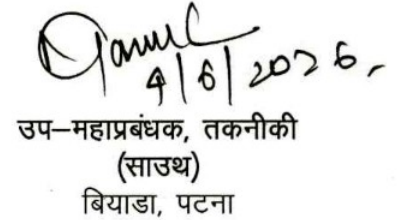 4/6/2026
उप-महाप्रबंधक, तकनीकी
(साउथ)
बियाडा, पटना